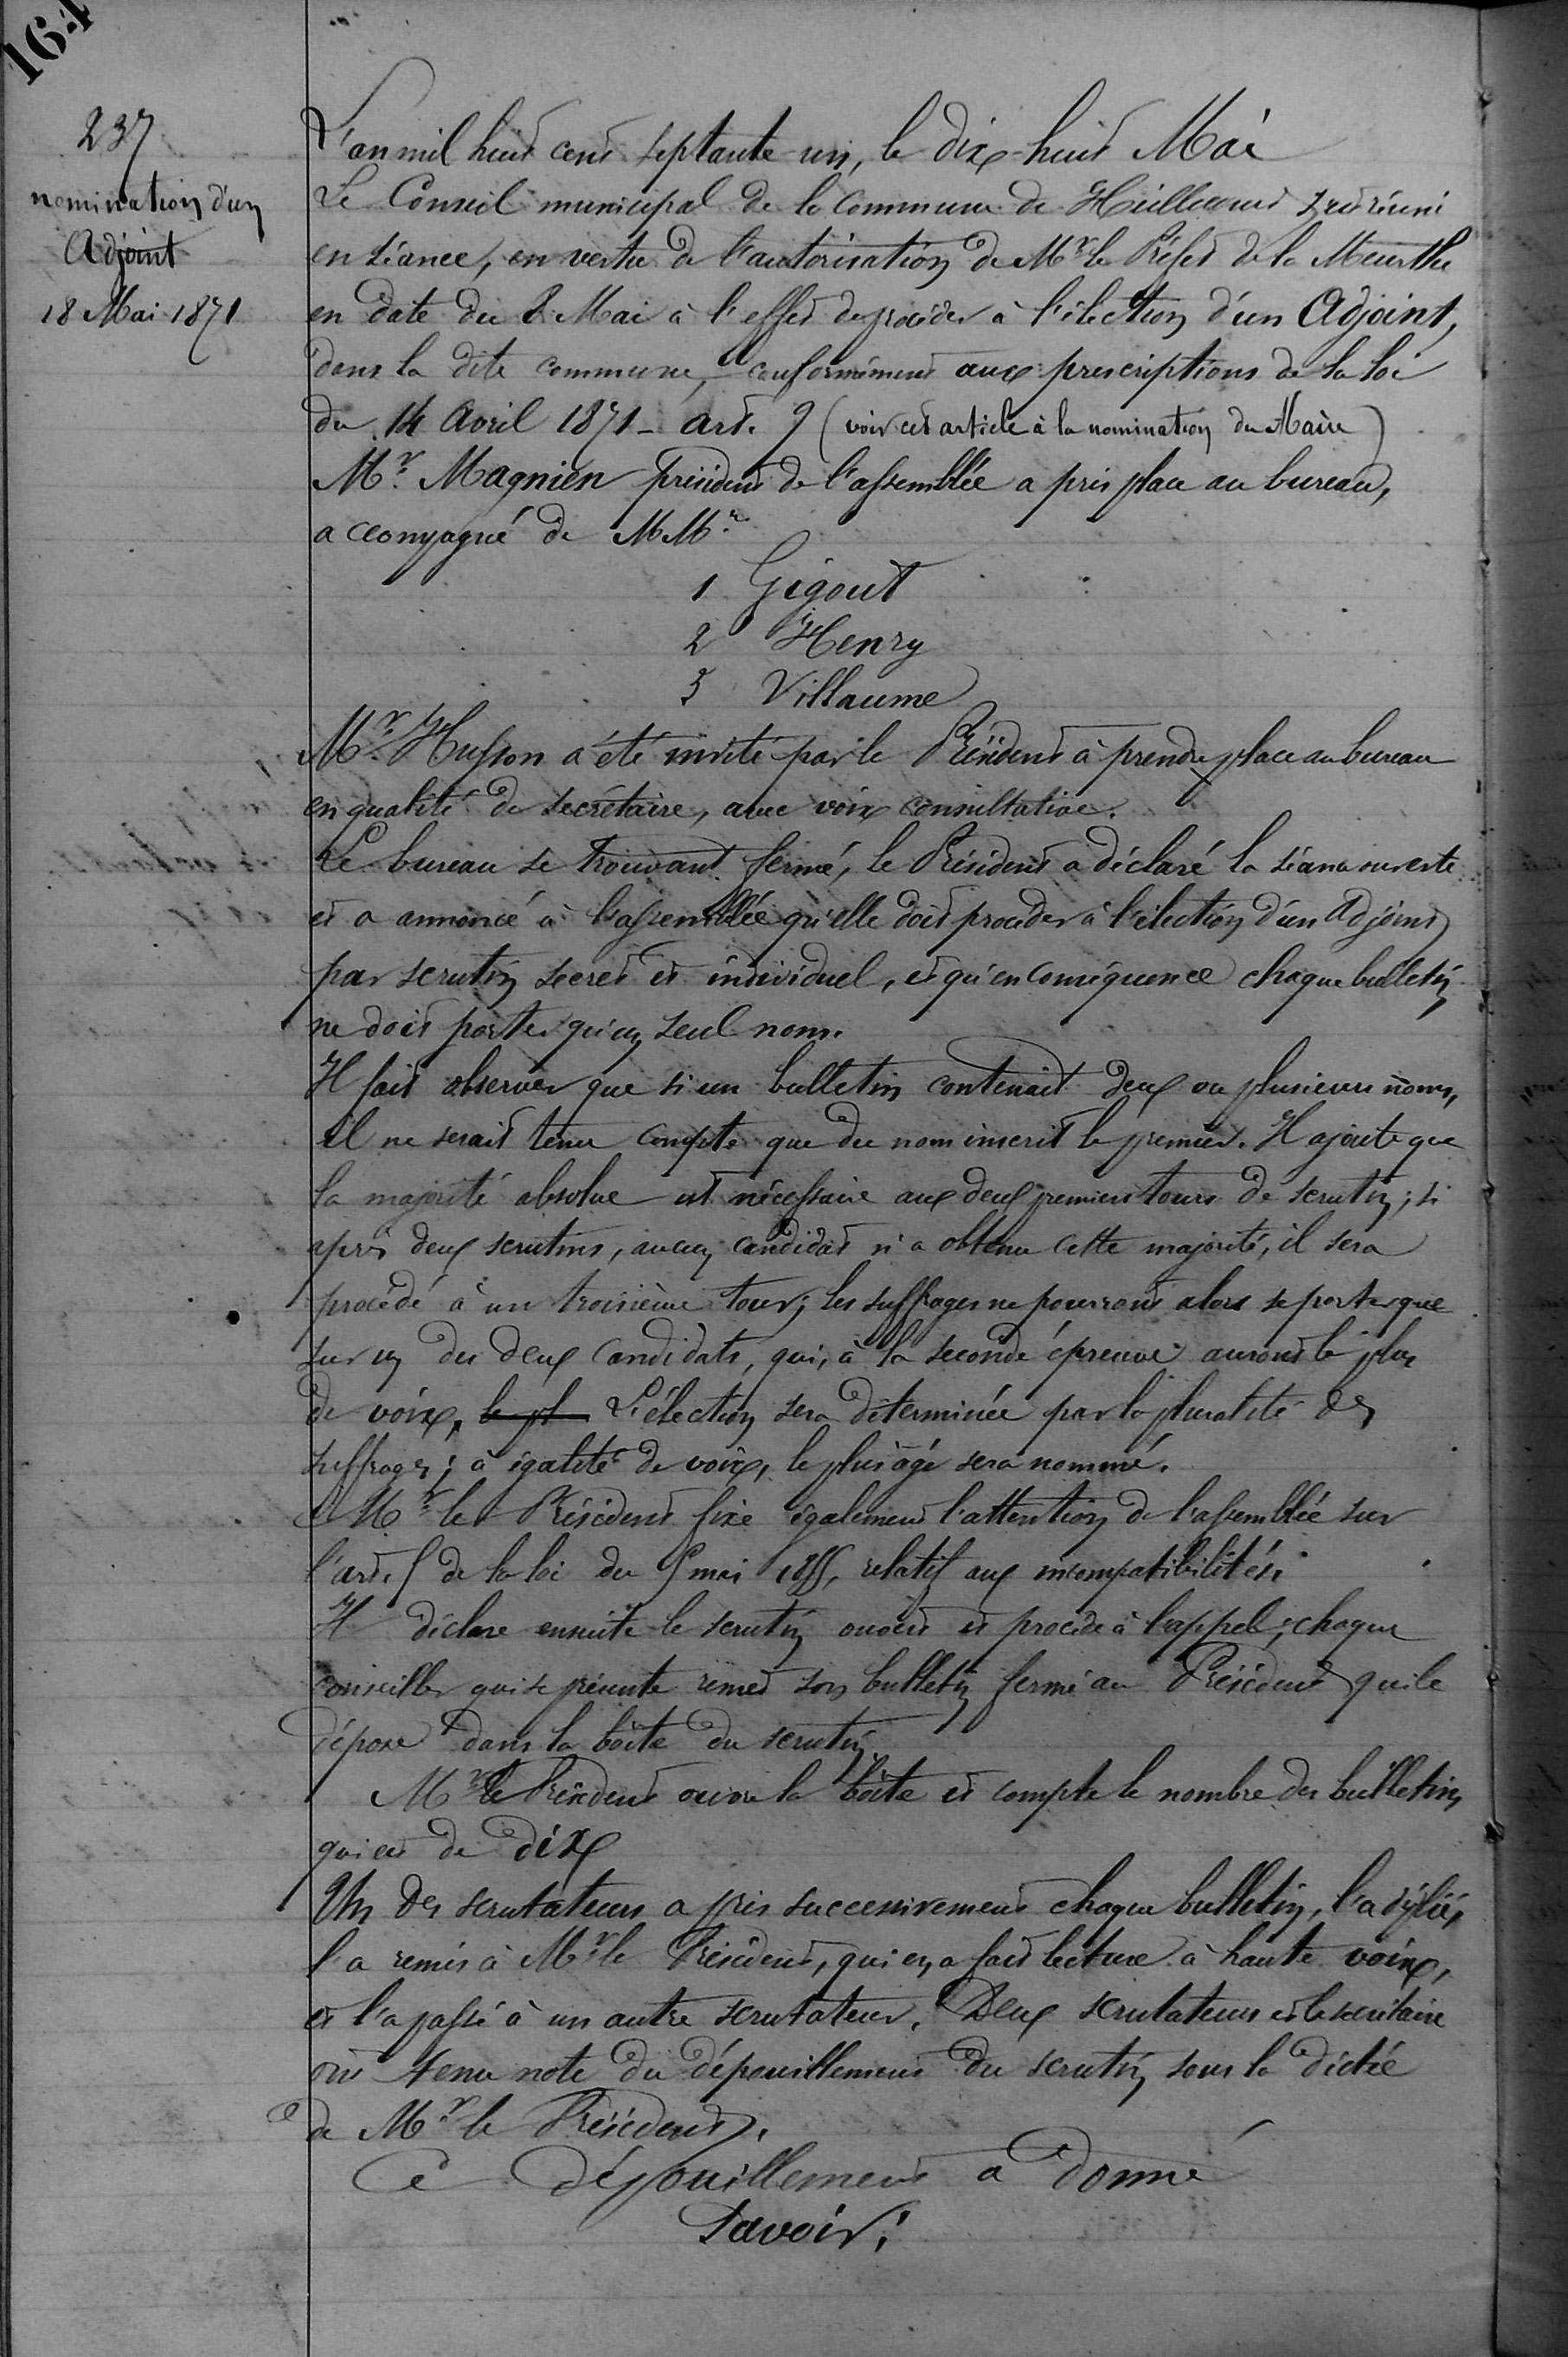 164
237
nomination d'un
Adjoint
18 Mai 1871
L'an mil huit cent septante un, le dix-huit Mai
Le Conseil municipal de la Commune de s'est réuni
en séance, en vertu de l'autorisation de Mr le Préfet de la Meurthe
en date du 8 Mai à l'effet de procéder à l'élection d'un Adjoint,
dans la dite commune, conformément aux prescriptions de la loi
du 14 Avril 1871 - art. 9 (voir cet article à la nomination du Maire)
Mr. Magnien président de l'assemblée a pris place au bureau,
accompagné de MMrs
1 Gigout
2 Henry
3 Villaume
Mr. Husson a été invité par le Président à prendre place au bureau
en qualité de secrétaire, avec voix consultative.
Le bureau se trouvant formé, le Président a déclaré la séance ouverte
et a annoncé à l'assemblée qu'elle doit procéder à l'élection d'un Adjoint
par scrutin secret et individuel, et qu'en conséquence chaque bulletin
ne doit porter qu'un seul nom.
Il fait observer que si un bulletin contenait deux ou plusieurs noms,
il ne serait tenu compte que du nom inscrit le premier. Il ajoute que
la majorité absolue est nécessaire aux deux premiers tours de scrutin ; si
après deux scrutins, aucun candidat n'a obtenu cette majorité, il sera
procédé à un troisième tour ; les suffrages ne pourront alors se porter que
sur un des deux candidats, qui, à la seconde épreuve auront le plus
de voix, le pl L'élection sera déterminée par la pluralité des
suffrages ; à égalité de voix, le plus âgé sera nommé.
Mr le Président fixe également l'attention de l'assemblée sur
l'art. 5 de la loi du 5 mai 1855, relatif aux incompatibilités.
Il déclare ensuite le scrutin ouvert et procède à l'appel ; chaque
conseiller qui se présente remet son bulletin fermé au Président qui le
dépose dans la boîte du scrutin.
Mr le Président ouvre la boîte et compte le nombre des bulletins
qui est de dix
Un des scrutateurs a pris successivement chaque bulletin, l'a déplié,
l'a remis à Mr le Président, qui en a fait lecture à haute voix,
et l'a passé à un autre scrutateur. Deux scrutateurs et le secrétaire
ont tenu note du dépouillement du scrutin sous la dictée
de Mr le Président.
Ce dépouillement a donné
Savoir :